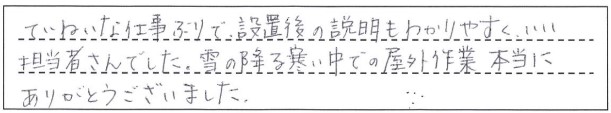 ていねいな仕事ぶりで、設置後の説明もわかりやすく、いい
担当者さんでした。雪の降る寒い中での屋外作業 本当に
ありがとうございました。